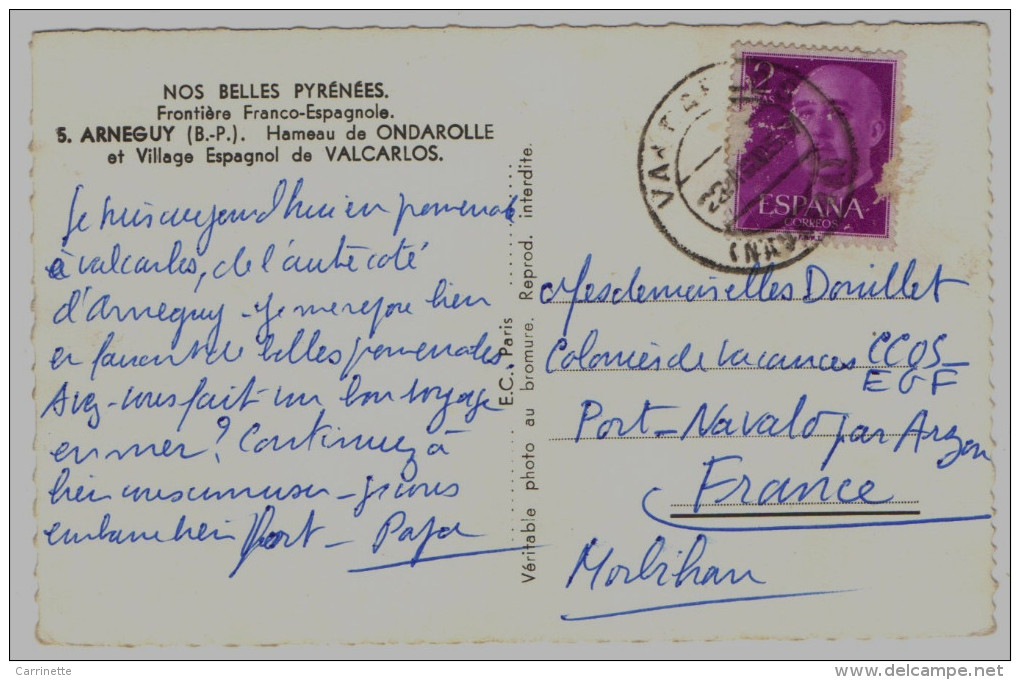 NOS BELLES PYRÉNÉES.
Frontière Franco-Espagnole.
5. ARNEGUY (B.-P.). Hameau de ONDAROLLE
et Village Espagnol de VALCARLOS.
Je suis aujourd'hui en promenade
à Valcarlos, de l'autre coté
d'Arneguy - Je me repose bien
en faisant de belles promenades
Avez-vous fait un bon voyage
en mer? Continuez à
bien vous amuser - Je vous
embrasse bien fort - Papa
E.C. Paris
Véritable photo au bromure. Reprod. interdite.
2
PTAS
ESPAÑA
CORREOS
VALCARLOS
(NAVARRA)
Mesdemoiselles Douillet
Colonies de vacances CCOS
EGF
Port-Navalo par Arzon
France
Morbihan
Carrinette
www.delcampe.net